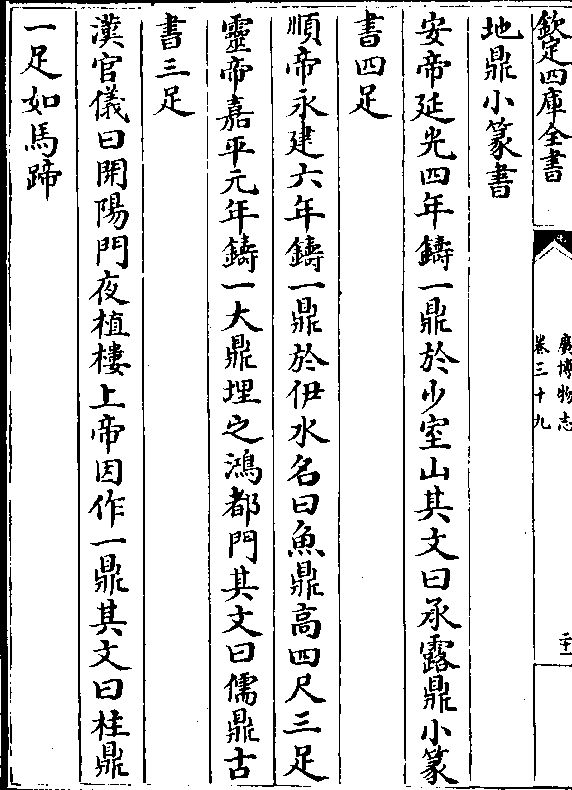 欽定四庫全書
廣博物志
卷三十九
二十一
地鼎小篆書
安帝延光四年鑄一鼎於少室山其文曰承露鼎小篆
書四足
順帝永建六年鑄一鼎於伊水名曰魚鼎高四尺三足
靈帝嘉平元年鑄一大鼎埋之鴻都門其文曰儒鼎古
書三足
漢官儀曰開陽門夜植樓上帝因作一鼎其文曰柱鼎
一足如馬蹄